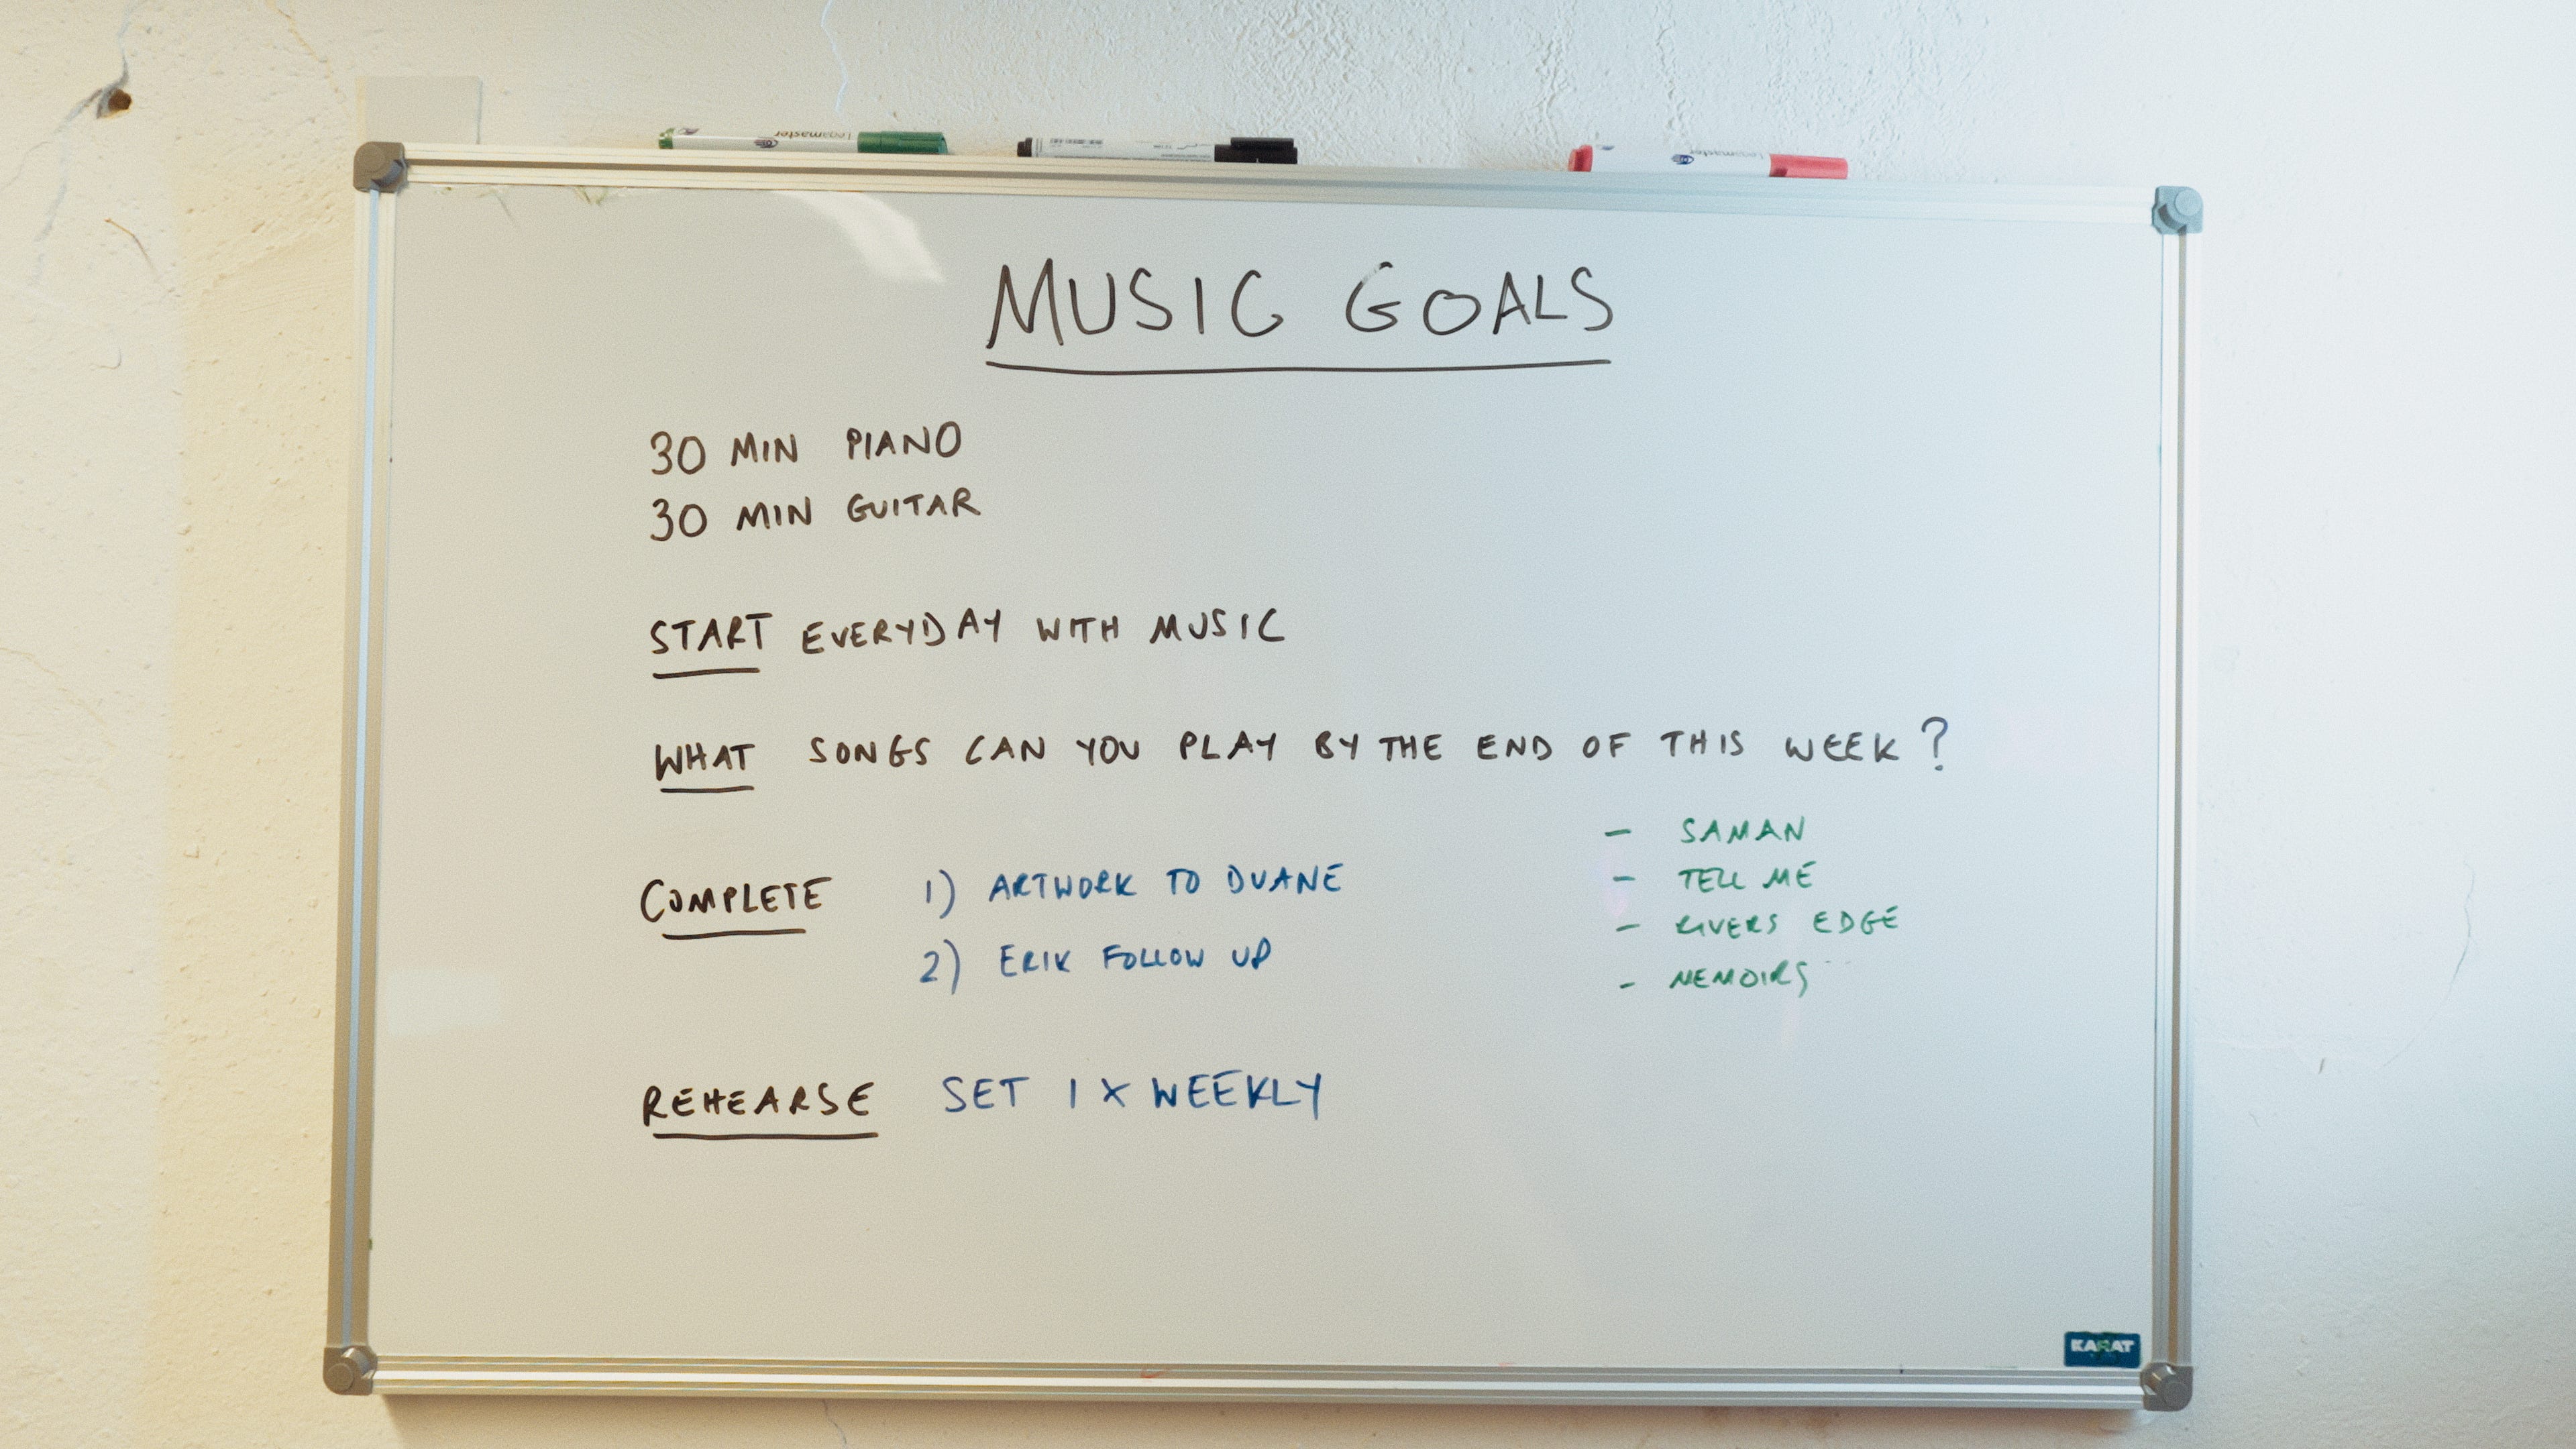 Legamaster
Legamaster
MUSIC GOALS
30 MIN PIANO
30 MIN GUITAR
START EVERYDAY WITH MUSIC
WHAT SONGS CAN YOU PLAY BY THE END OF THIS WEEK?
- SAMAN
- TELL ME
- RIVERS EDGE
- MEMOIRS
COMPLETE 1) ARTWORK TO DUANE
2) ERIK FOLLOW UP
REHEARSE SET 1 X WEEKLY
KARAT